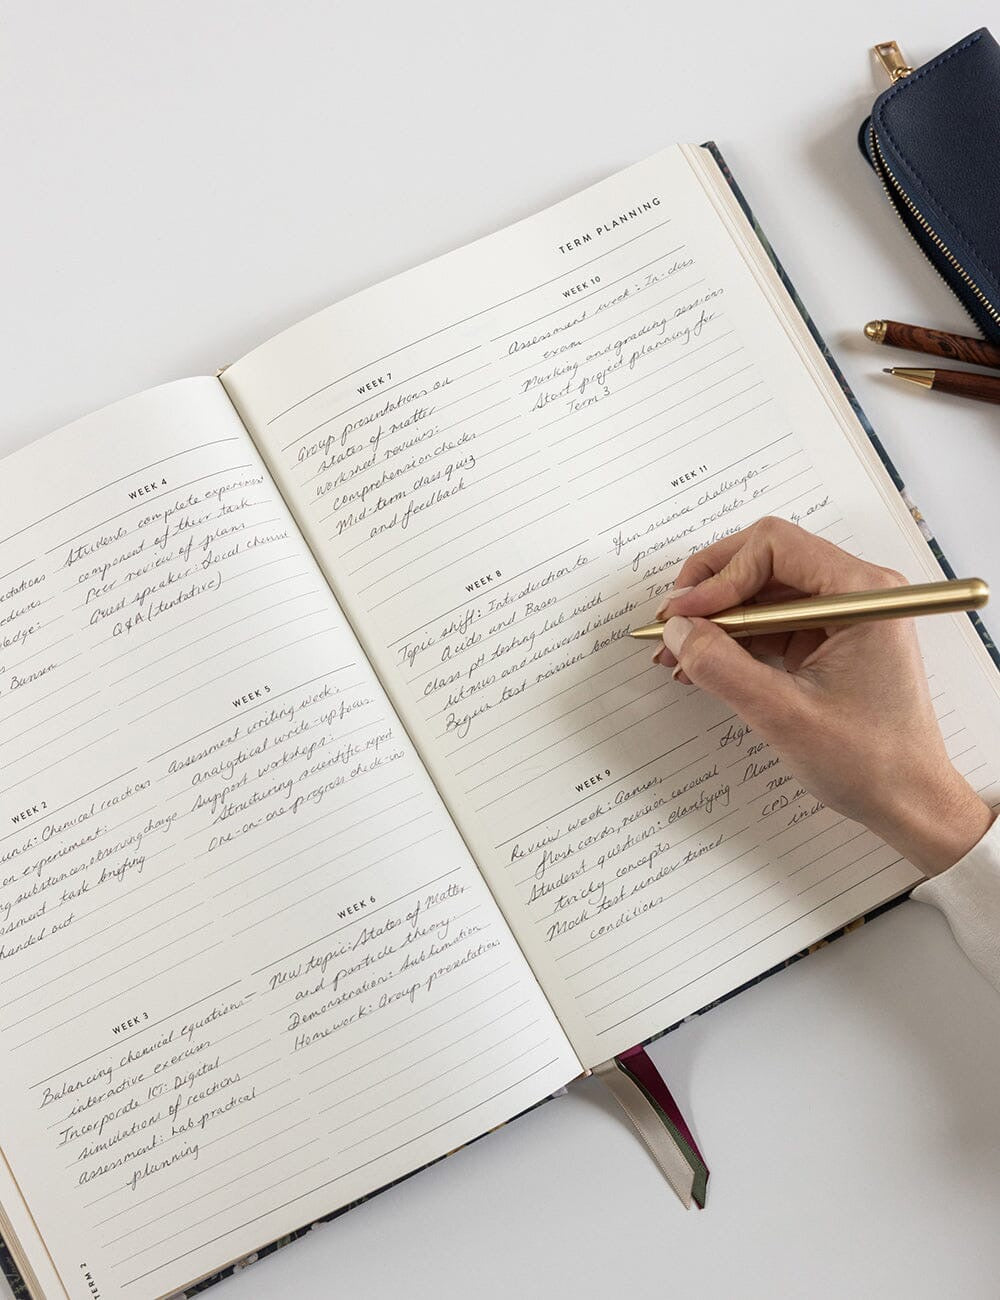 TERM 2
estations
edures
ledge:
Bunsen
WEEK 2
unch: Chemical reactions
on experiment:
ng substances, observing change
essment task briefing
handed out
WEEK 3
Balancing chemical equations—
interactive exercises
Incorporate ICT: Digital
simulations of reactions
Assessment: Lab practical
planning
WEEK 4
Students complete experiment
component of their task
Peer review of plans
Guest speaker: Local chemist
Q&A (tentative)
WEEK 5
Assessment writing week:
analytical write-up focus.
Support workshops:
Structuring scientific report
One-on-one progress check-ins
WEEK 6
New topic: States of Matter
and particle theory.
Demonstration: Sublimation
Homework: Group presentations
TERM PLANNING
WEEK 7
Group presentations on
states of matter
Worksheet reviews:
comprehension checks
Mid-term class quiz
and feedback
WEEK 8
Topic shift: Introduction to
Acids and Bases
Class pH testing lab with
litmus and universal indicator
Begin test revision booklet
WEEK 9
Review week: Games,
flash cards, revision carousel
Student questions: Clarifying
tricky concepts
Mock test under timed
conditions
WEEK 10
Assessment week: In-class
exam
Marking and grading sessions
Start project planning for
Term 3
WEEK 11
Fun science challenges—
pressure rockets or
slime making
Ter ty and
no.
Plann
new
CPD
inclu